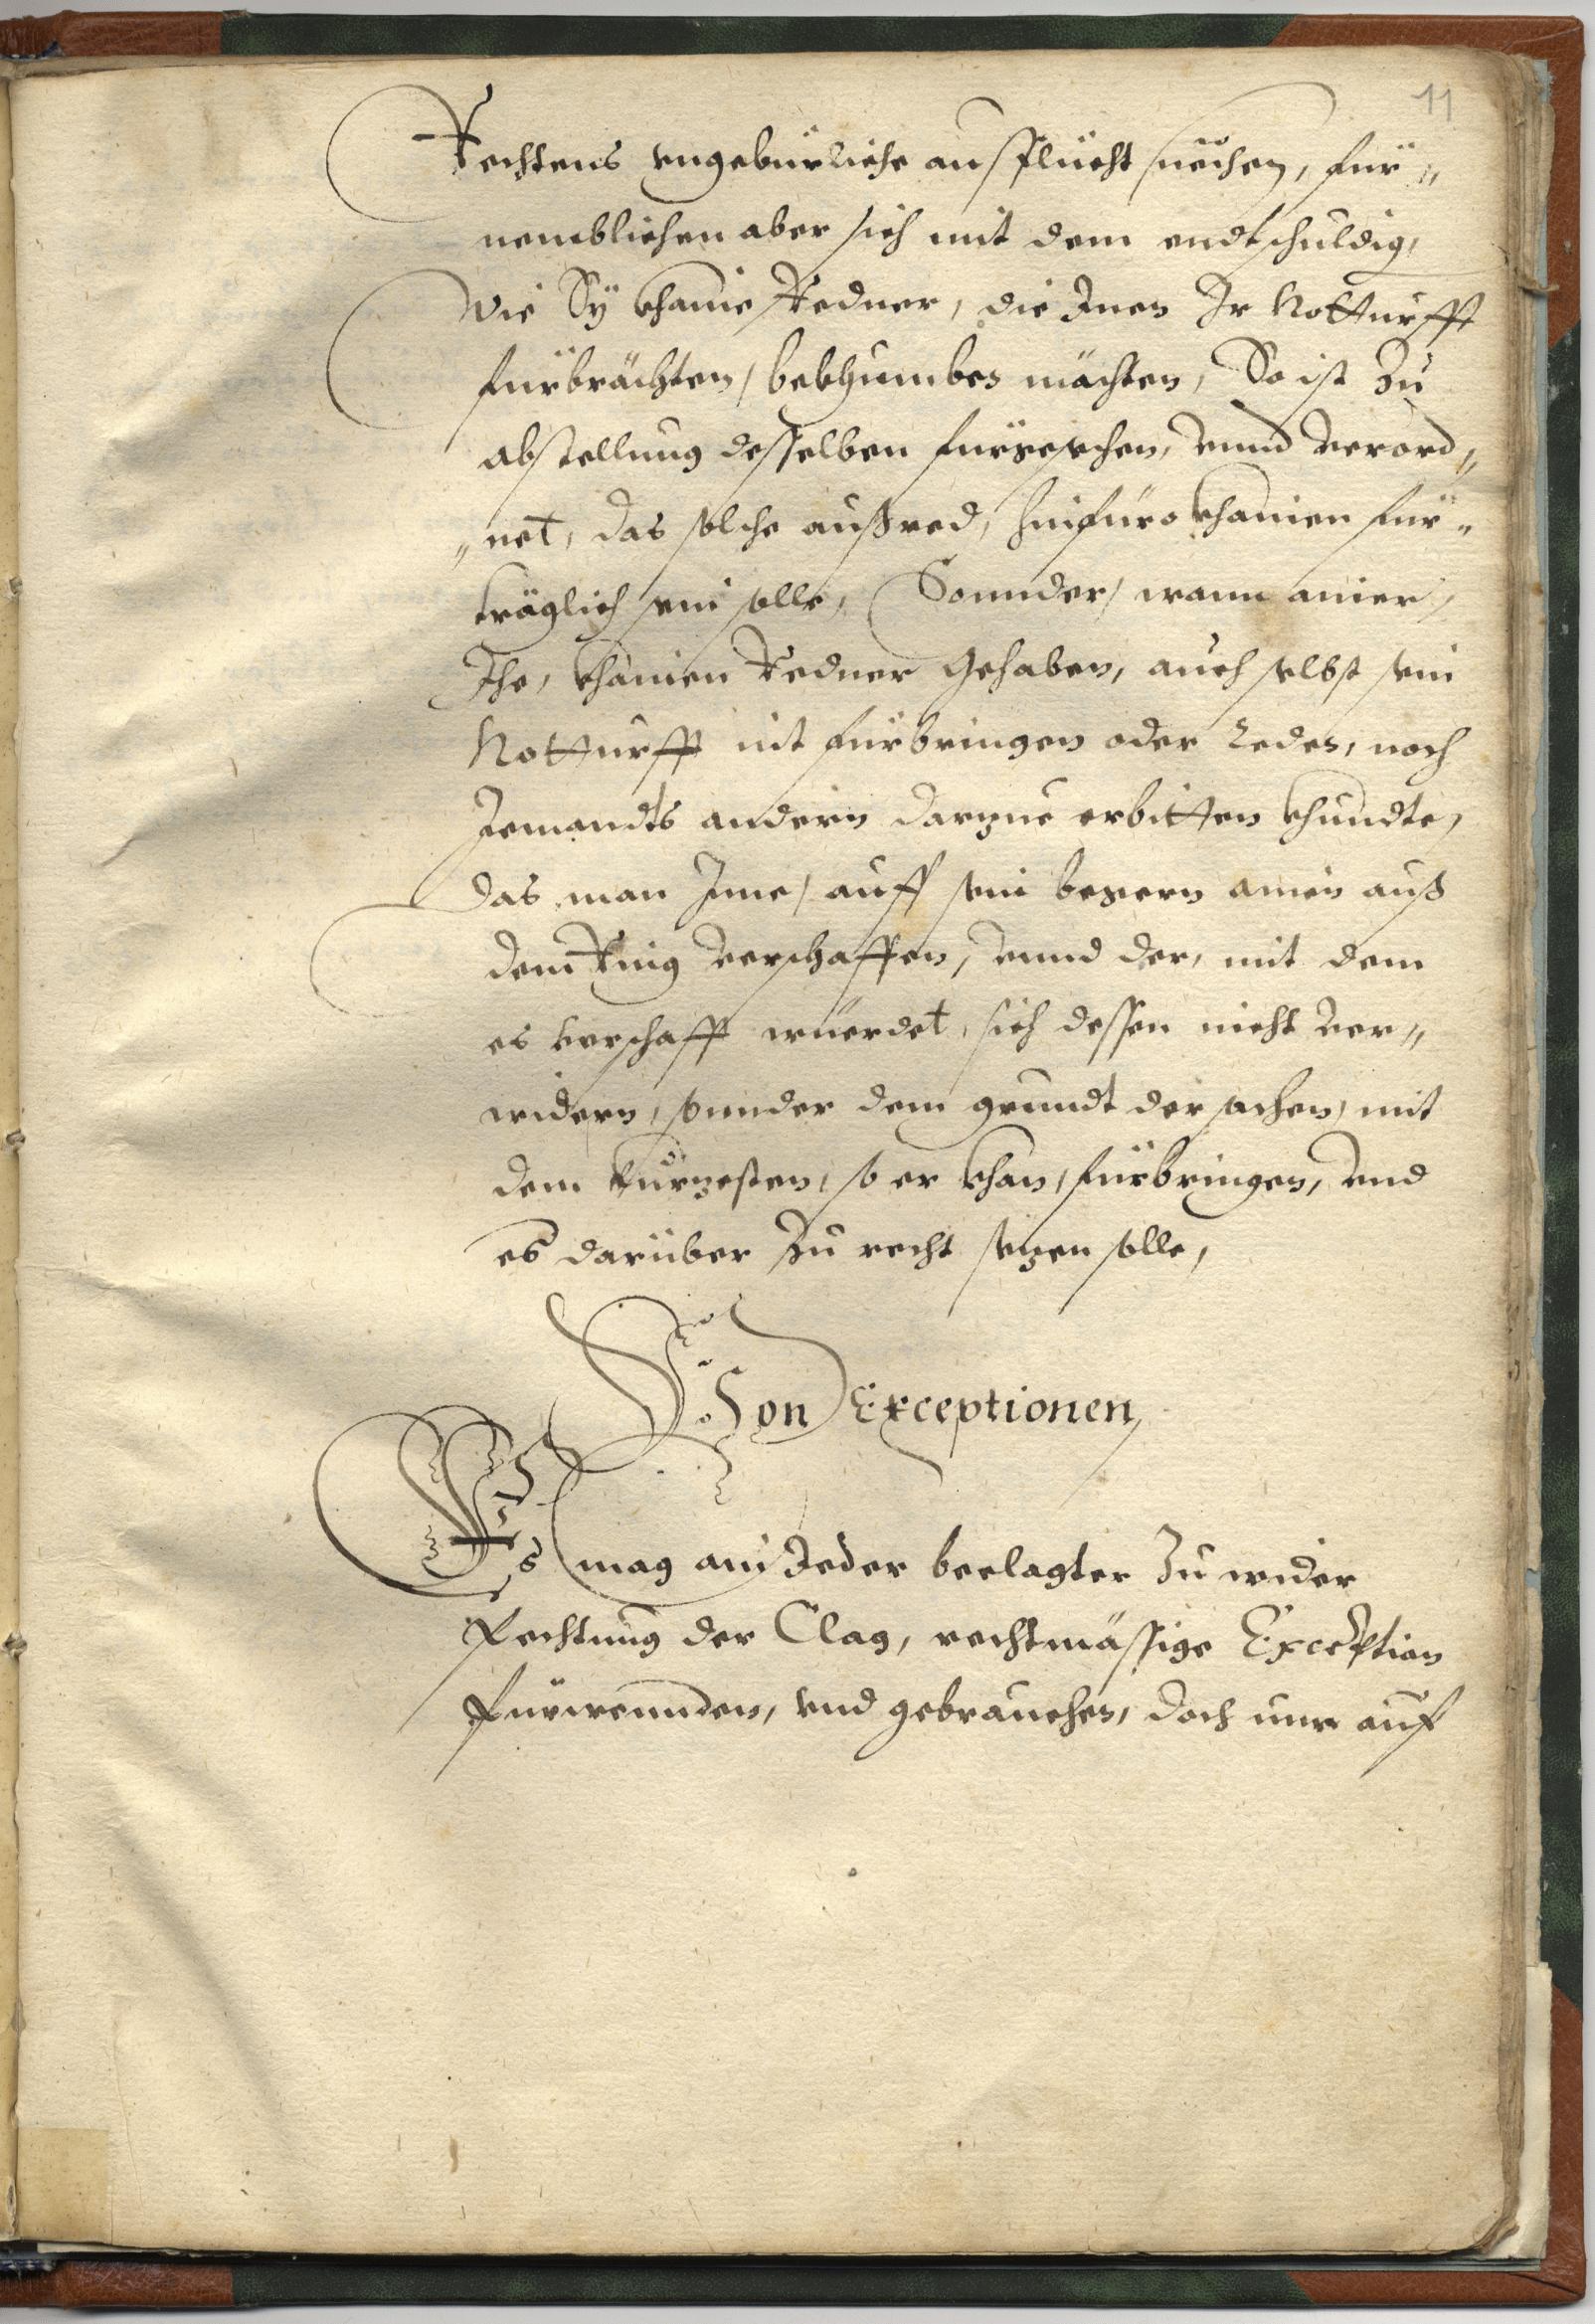 11
Rechtens ungebürliche ausflücht suechen, für„
nemblichen aber sich mit dem endtschuldig,
wie Sy khaine Redner, die Inen Ir Notturfft
fürbrächten, bekhumben möchten, So ist Zu
abstellung desselben fürgesehen, unnd verord„
„net, das solche außred, hinfüro khainen für„
träglich sein solle, Sonnder, wann ainer,
Ihe, khainen Redner gehaben, auch selbst sein
Notturfft nit fürbringen oder Reden, noch
Jemandts andern darzue erbitten khundte,
das man Ime, auff sein begern ainen auß
dem Ring verschaffen, unnd der, mit dem
es verschafft wuerdet, sich dessen nicht ver„
widern, sunder dem grundt der sachen, mit
dem kürzesten, so er khan, fürbringen, und
es darüber Zu recht sezen solle,
Von Exceptionen
Es mag ain Jeder beclagter Zu wider
fechtung der Clag, rechtmässige Exception
fürwennden, und gebrauchen, doch nur auf